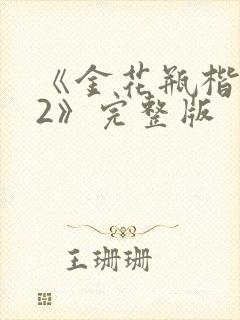 《金花瓶楷
2》完整版
王珊珊